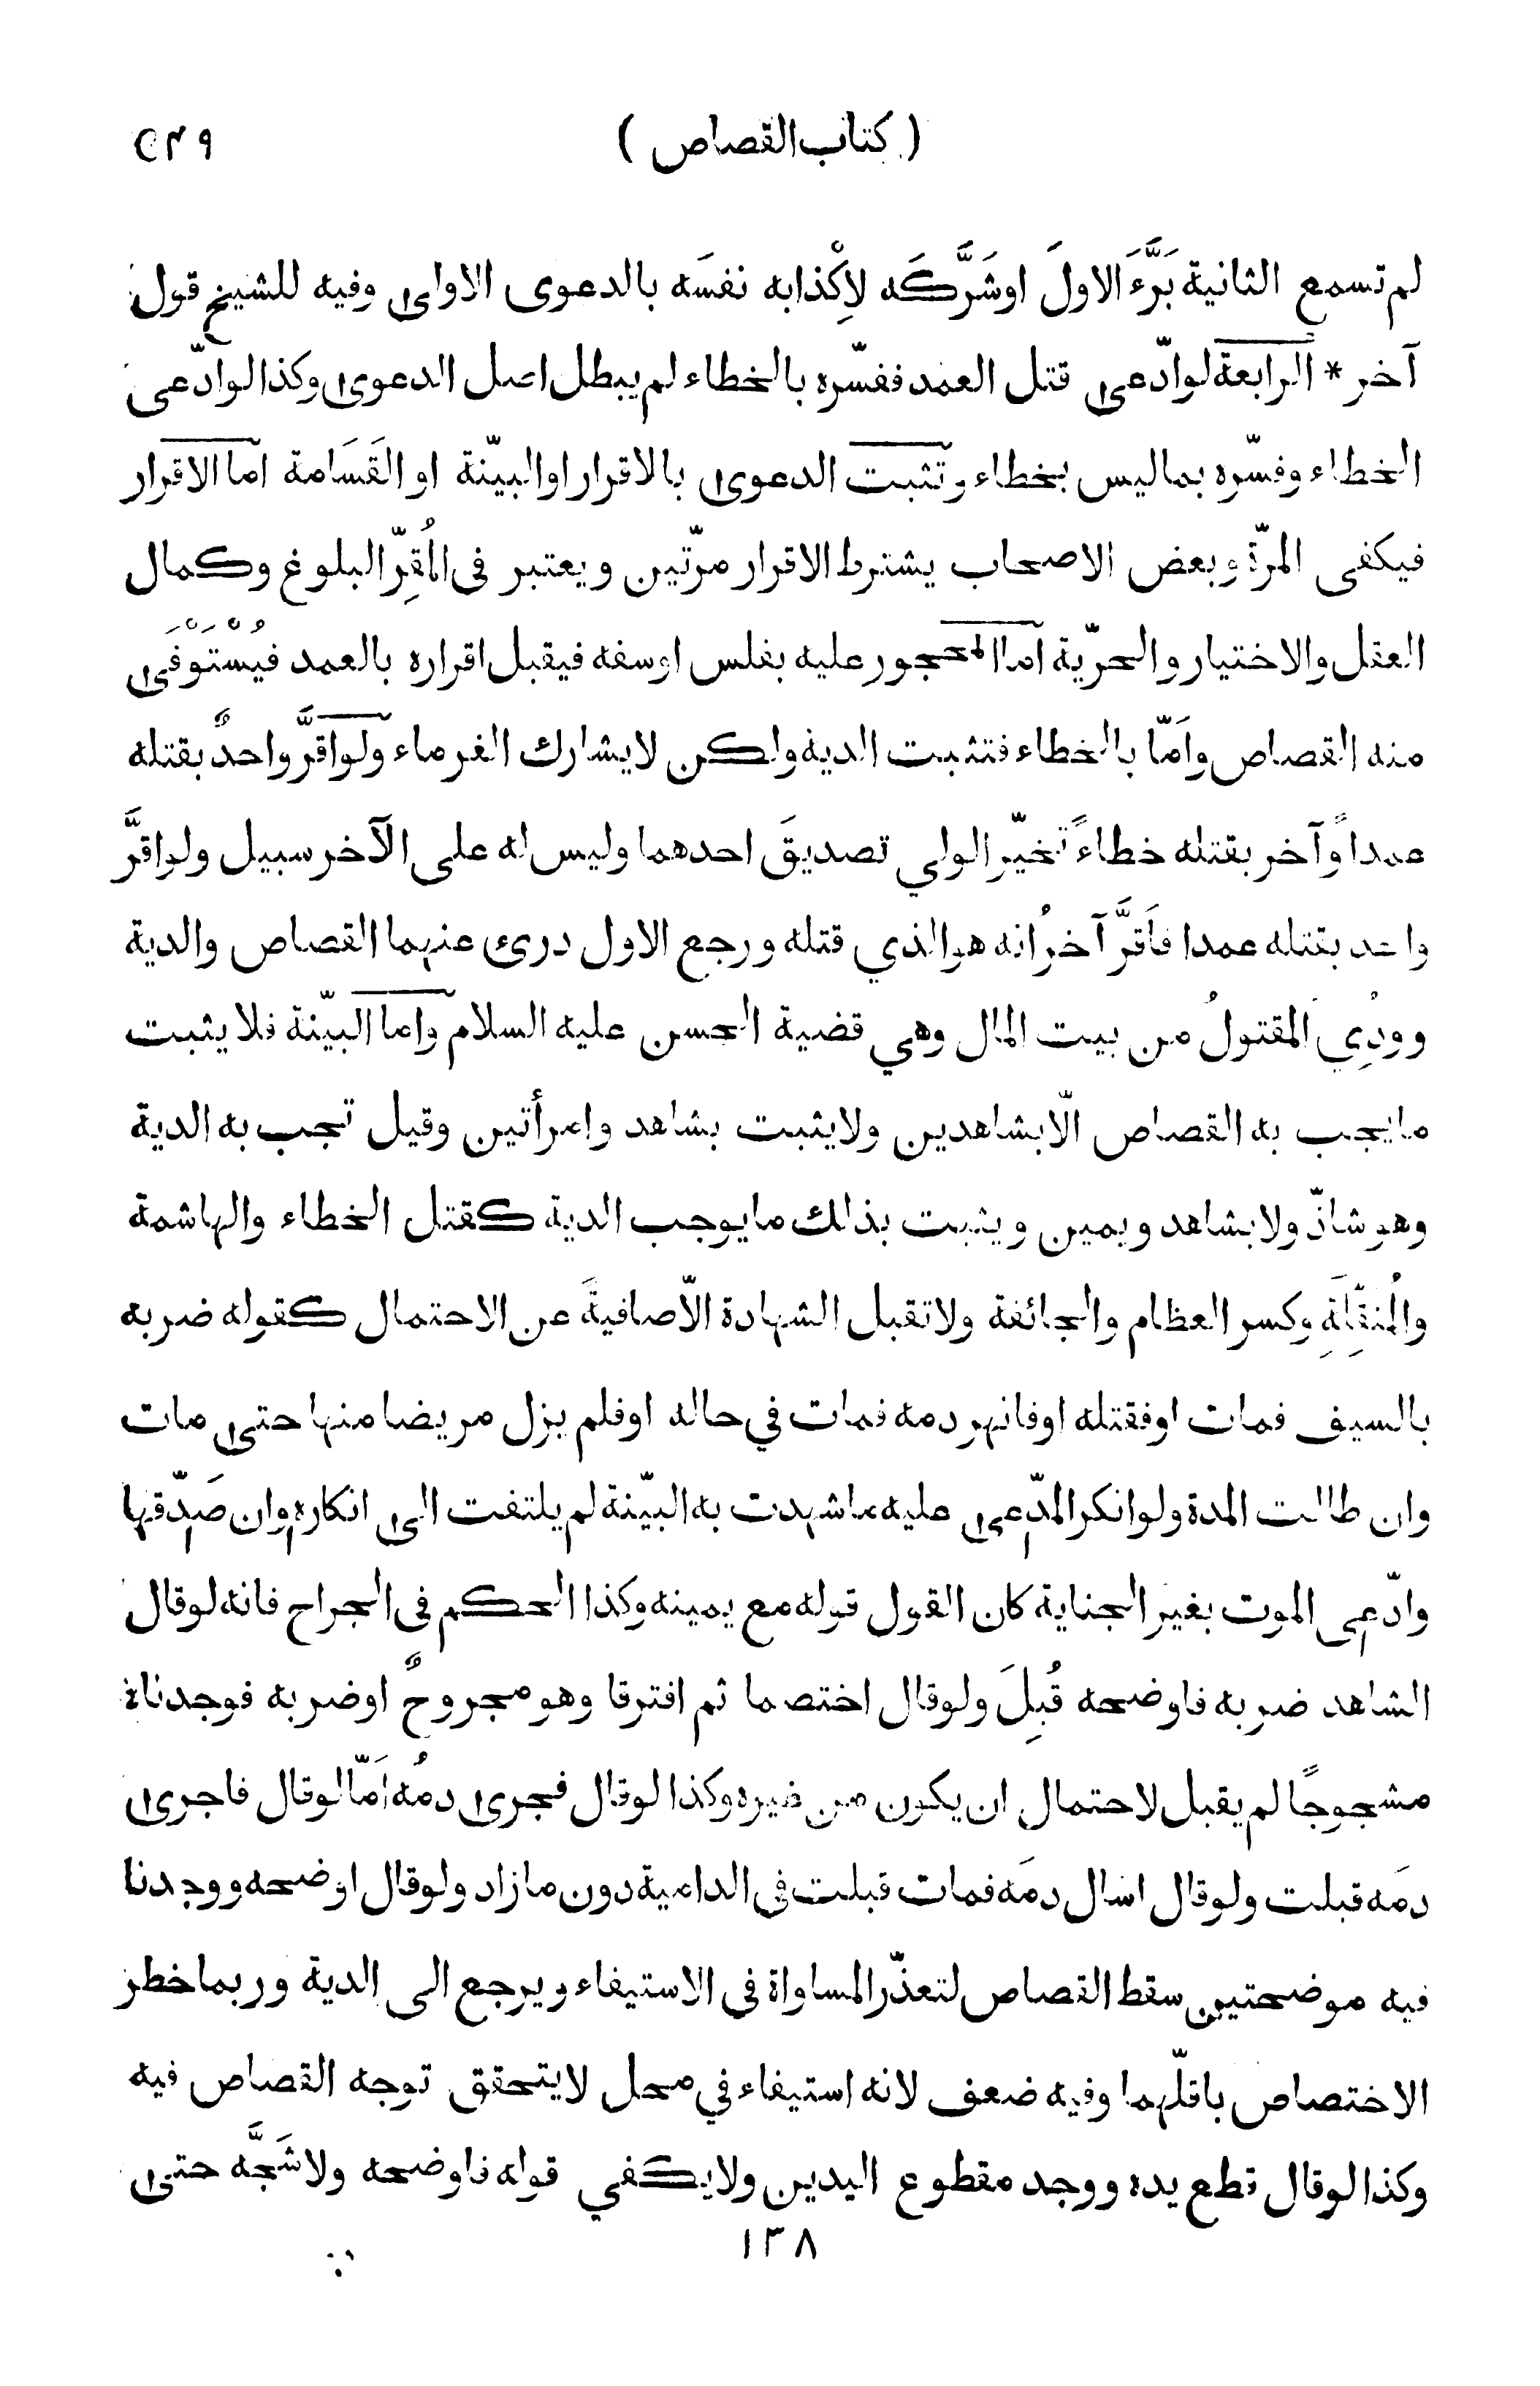 ( كتاب القصاص ) ٥٤٩
لم تسمع الثانية بَرَّءَ الاولَ اوشَرَّكَه لاِكْذابه نفسَه بالدعوى الاولى وفيه للشيخ قول
آخر * الرابعة لوادّعى قتل العمد ففسّره بالخطاء لم يبطل اصل الدعوى وكذا لوادّعى
الخطاء وفسّره بما ليس بخطاء وتثبت الدعوى بالاقرار اوالبيّنة او القَسَامة امّا الاقرار
فيكفى المرّة وبعض الاصحاب يشترط الاقرار مرّتين ويعتبر فى المُقِرّ البلوغ وكمال
العقل والاختيار والحرّية امّا المحجور عليه بفلس اوسفه فيقبل اقراره بالعمد فيُسْتَوْفَى
منه القصاص وامّا بالخطاء فتثبت الدية ولكن لايشارك الغرماء ولواقرَّ واحدٌ بقتله
عمداً وآخر بقتله خطاءً تخيّر الولي تصديقَ احدهما وليس له على الآخر سبيل ولواقرَّ
واحد بقتله عمدا فاَقرَّ آخرُ انه هوالذي قتله ورجع الاول درئ عنهما القصاص والدية
وودُِي المقتولُ من بيت المال وهي قضية الحسن عليه السلام واما البيّنة فلا يثبت
مايجب به القصاص الّا بشاهدين ولايثبت بشاهد وامرأتين وقيل تجب به الدية
وهو شاذّ ولا بشاهد ويمين ويثبت بذلك مايوجب الدية كقتل الخطاء والهاشمة
والمُنقِّلَةِ وكسر العظام والجائفة ولاتقبل الشهادة الّا صافيةً عن الاحتمال كقوله ضربه
بالسيف فمات اوفقتله اوفانهر دمه فمات في حاله اوفلم يزل مريضا منها حتى مات
وان طالت المدة ولوانكر المدّعى عليه ماشهدت به البيّنة لم يلتفت الى انكاره وان صَدّقها
وادّعى الموت بغير الجناية كان القول قوله مع يمينه وكذا الحكم فى الجراح فانه لوقال
الشاهد ضربه فاوضحه قُبِلَ ولوقال اختصما ثم افترقا وهو مجروحٌ اوضربه فوجدناه
مشجوجًا لم يقبل لاحتمال ان يكون من غيره وكذا لوقال فجرى دمُه اَمّا لوقال فاجرى
دمَه قبلت ولوقال اسال دمَه فمات قبلت فى الدامية دون مازاد ولوقال اوضحه ووجدنا
فيه موضحتين سقط القصاص لتعذّر المساواة فى الاستيفاء ويرجع الى الدية وربما خطر
الاختصاص باقلّهما وفيه ضعف لانه استيفاء في محل لايتحقق توجه القصاص فيه
وكذا لوقال قطع يده ووجد مقطوع اليدين ولايكفي قوله فاوضحه ولاشَجَّه حتى
١٣٨